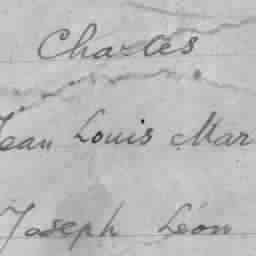 Charles
Jean Louis Mar
Joseph Léon